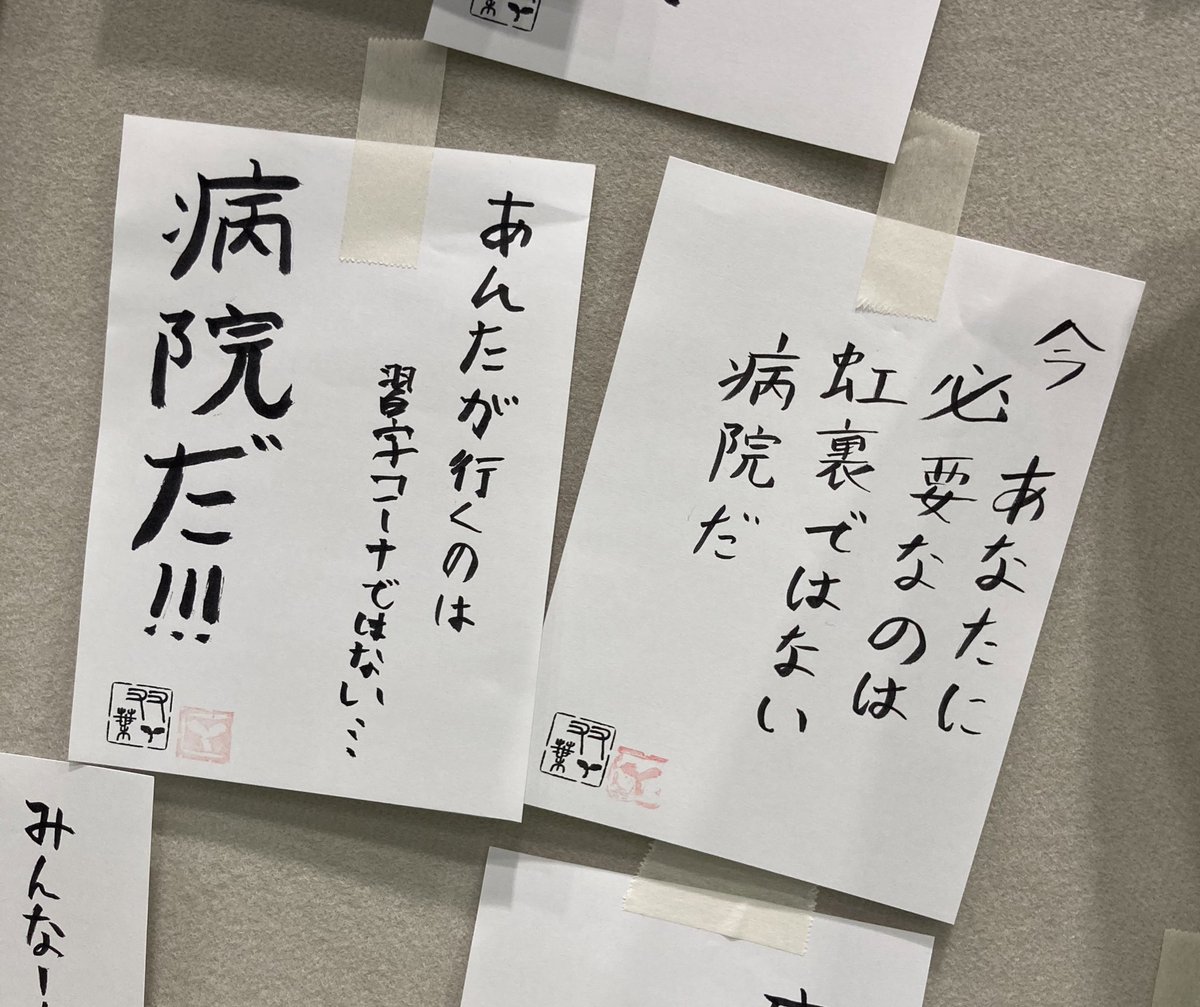 あんたが行くのは
習字コーナーではない…
病院だ!!!
双葉
今
あなたに
必要なのは
虹裏ではない
病院だ
双葉
みんなー